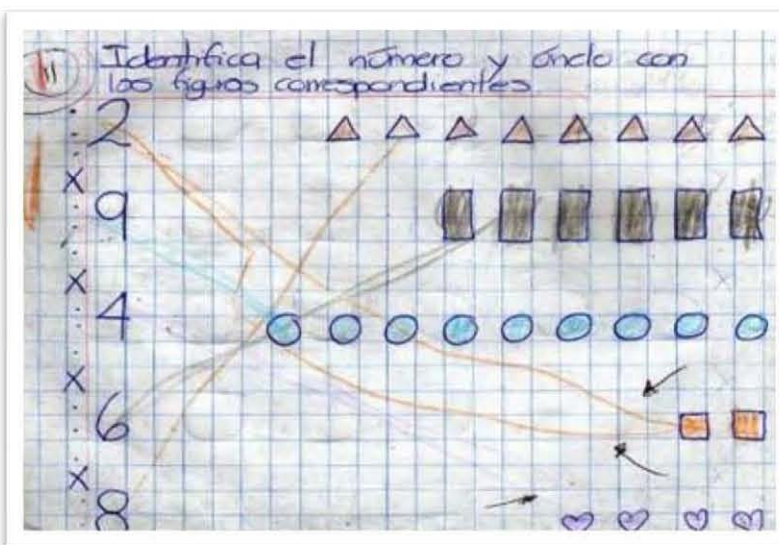 11
Identifica el número y únelo con
las figuras correspondientes
2
X
9
X
4
X
6
X
8